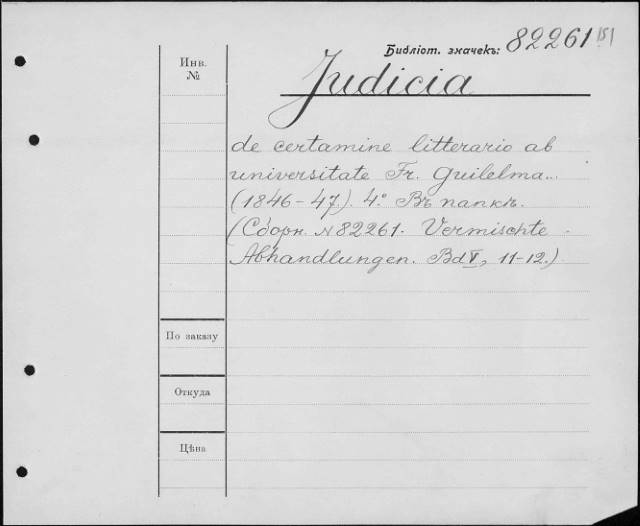 Библіот. значекъ: 82261 151
Инв.
№
Judicia
de certamine litterario ab
universitate Fr. Guilelma..
(1846-47.). 4.º Въ папкѣ.
(Сборн. N 82261. Vermischte
Abhandlungen. Bd V, 11-12.)
По заказу
Откуда
Цѣна